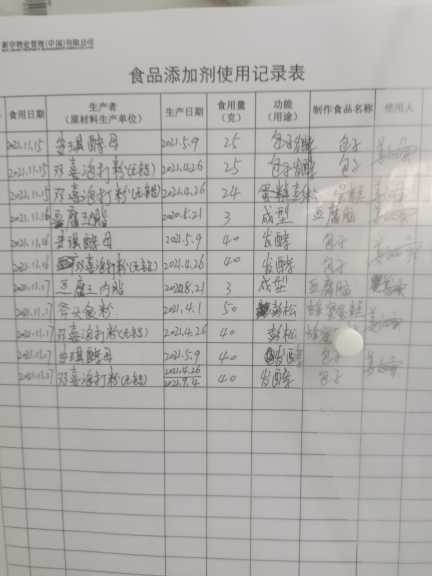 新中物业管理(中国)有限公司
食品添加剂使用记录表
食用日期 生产者(原材料生产单位) 生产日期 食用量(克) 功能(用途) 制作食品名称 使用人
2021.11.15 安琪酵母 2021.5.9 25 包子发酵 包子
2021.11.15 双喜泡打粉(无铝) 2021.4.26 25 包子发酵 包子
2021.11.15 双喜泡打粉(无铝) 2021.4.26 24 蛋糕 蛋糕
2021.11.16 豆腐王内酯 2020.8.21 3 成型 豆腐脑
2021.11.16 安琪酵母 2021.5.9 40 发酵 包子
2021.11.16 双喜泡打粉(无铝) 2021.4.26 40 发酵 包子
2021.11.17 豆腐王内酯 2020.8.21 3 成型 豆腐脑
2021.11.17 斧头食粉 2021.4.1 50 膨松 蜂蜜蛋糕
2021.11.17 双喜泡打粉(无铝) 2021.4.26 40 膨松 蜂蜜
2021.11.17 安琪酵母 2021.5.9 40 发酵 包子
2021.11.17 双喜泡打粉(无铝) 2021.4.26 2021.9.4 40 发酵 包子